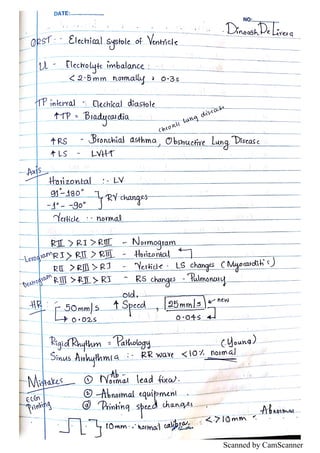 DATE:
NO:
Dinoosh De Livera
QRST :- Electrical systole of Ventricle
U - Electrolyte imbalance :
< 2.5mm normally : 0.3s
TP interval - Electrical diastole
↑TP = Bradycardia
chronic lung disease
↑RS - Bronchial asthma, Obstructive Lung Disease
↑LS - LVHT
Axis
Horizontal :- LV
91°-180°
-1° - -90° } RV changes
Verticle :- normal
RII > RI > RIII - Normogram
Levogram RI > RII > RIII - Horizontal
RII > RIII > RI - Verticle : LS changes (Myocarditis)
Dextrogram RIII > RII > RI - RS changes - Pulmonary
HR : old.
50mm/s ↑ Speed 25mm/s new
→ 0.02s 0.04s
Rigid Rhythm = Pathology (Young)
Sinus Arrhythmia : RR wave < 10% normal
Mistakes
ECG Printing
① Abnormal lead fixa.
② Abnormal equipment.
③ Printing speed changes.
10mm :- normal < > 10mm - Abnormal
Scanned by CamScanner